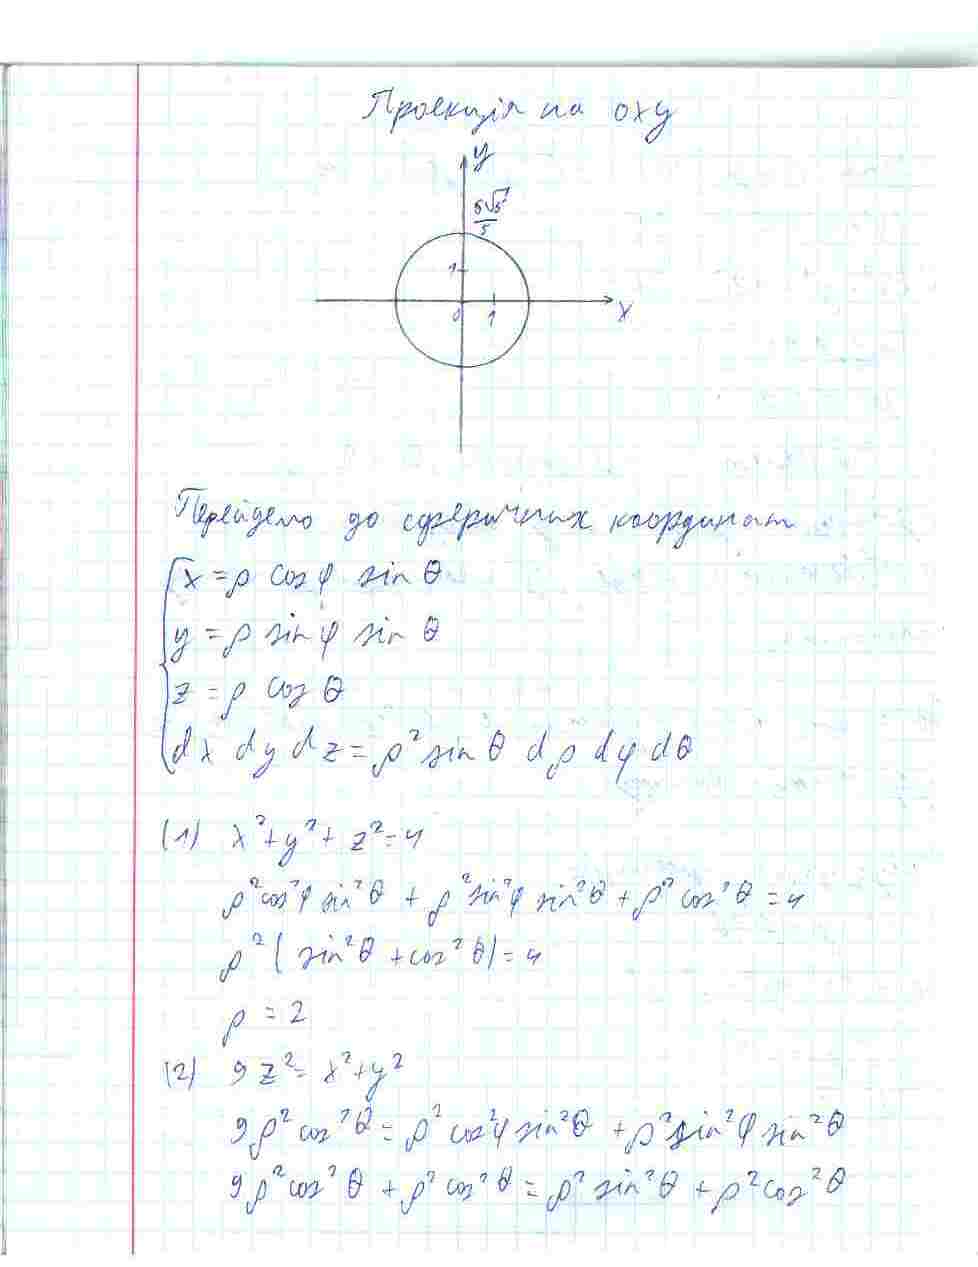 Проекція на oxy
y
6√5
5
1
0 1 x
Перейдемо до сферичних координат
x = ρ cos φ sin θ
y = ρ sin φ sin θ
z = ρ cos θ
dx dy dz = ρ² sin θ dρ dφ dθ
(1) x² + y² + z² = 4
ρ² cos² φ sin² θ + ρ² sin² φ sin² θ + ρ² cos² θ = 4
ρ² (sin² θ + cos² θ) = 4
ρ = 2
(2) 9z² = x² + y²
9ρ² cos² θ = ρ² cos² φ sin² θ + ρ² sin² φ sin² θ
9ρ² cos² θ + ρ² cos² θ = ρ² sin² θ + ρ² cos² θ